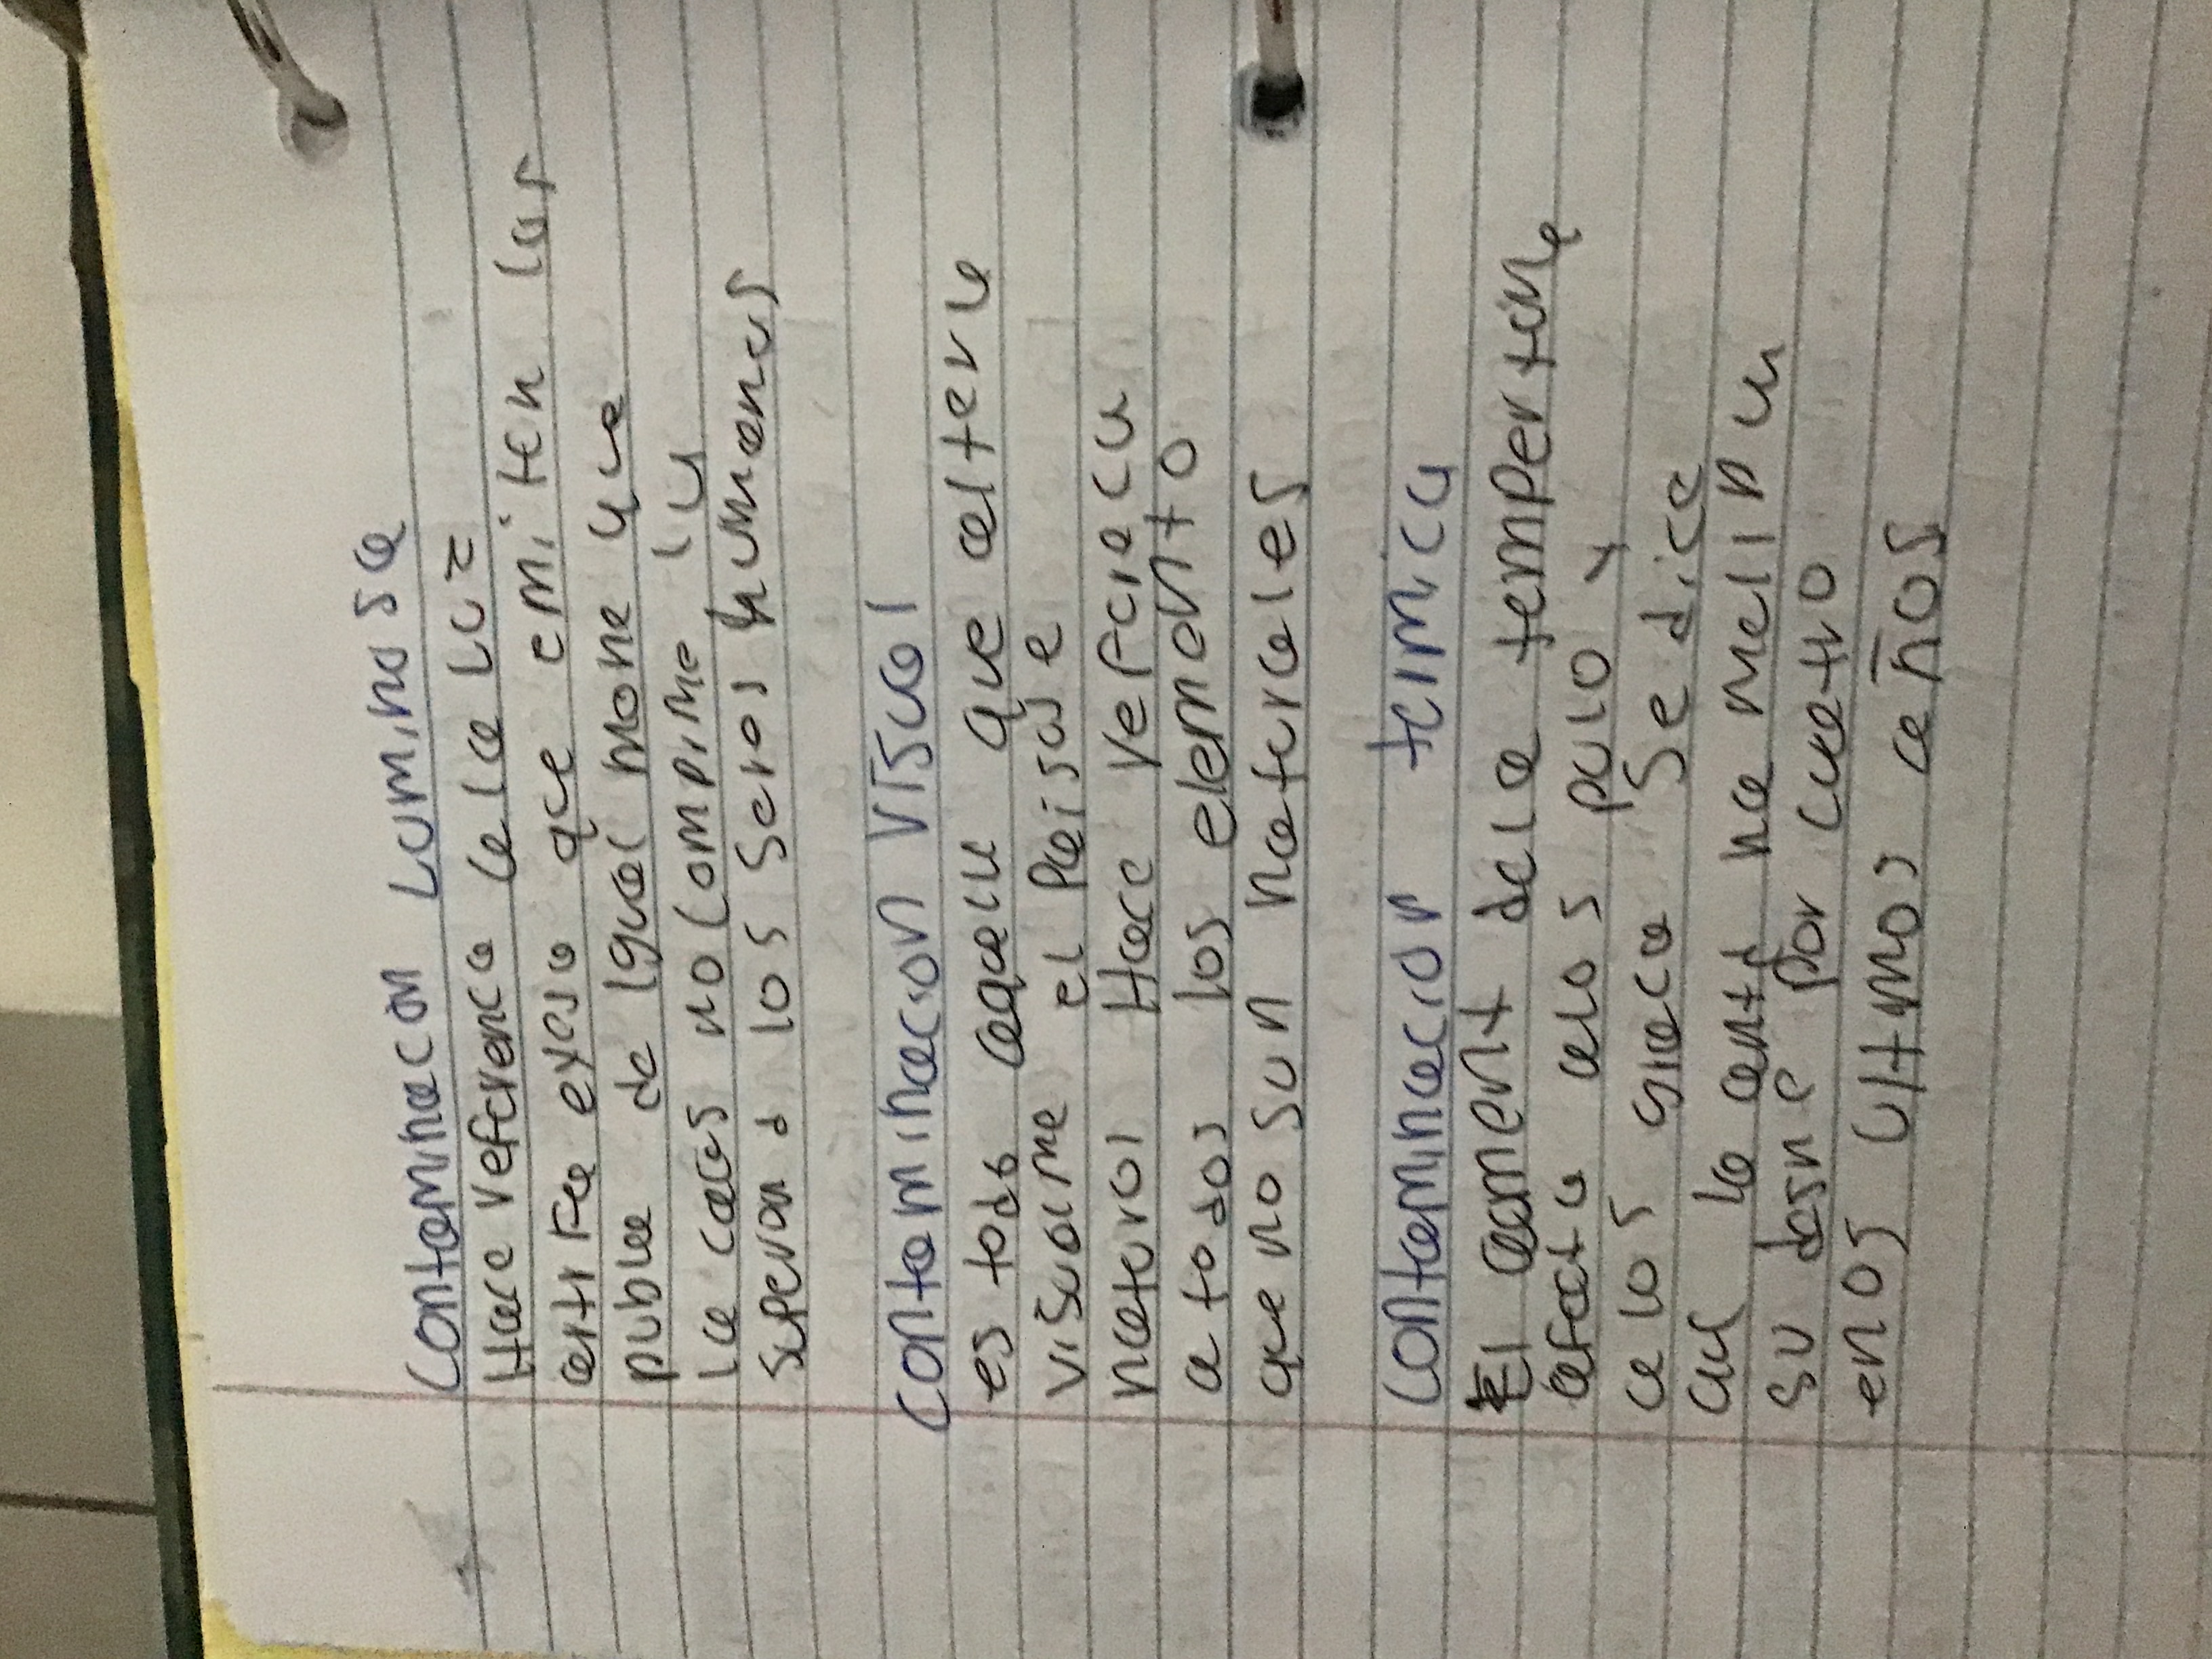 Contaminacon Luminosa
Hace referenca a la luz
artifa exeso que emiten las
publa de igual mone que
la caas no comprime la
superon a los seros humanos
Contaminacion visual
es todo aquella que altera
visualme el paisaje
natural Hace referecia
a todos los elemento
que no sun naturales
Contaminacion termica
El aument dela tempertura
afecta alos polo y
a los glaca Se dice
la antd na melipu
su dasne por cuatro
enos ultimos años